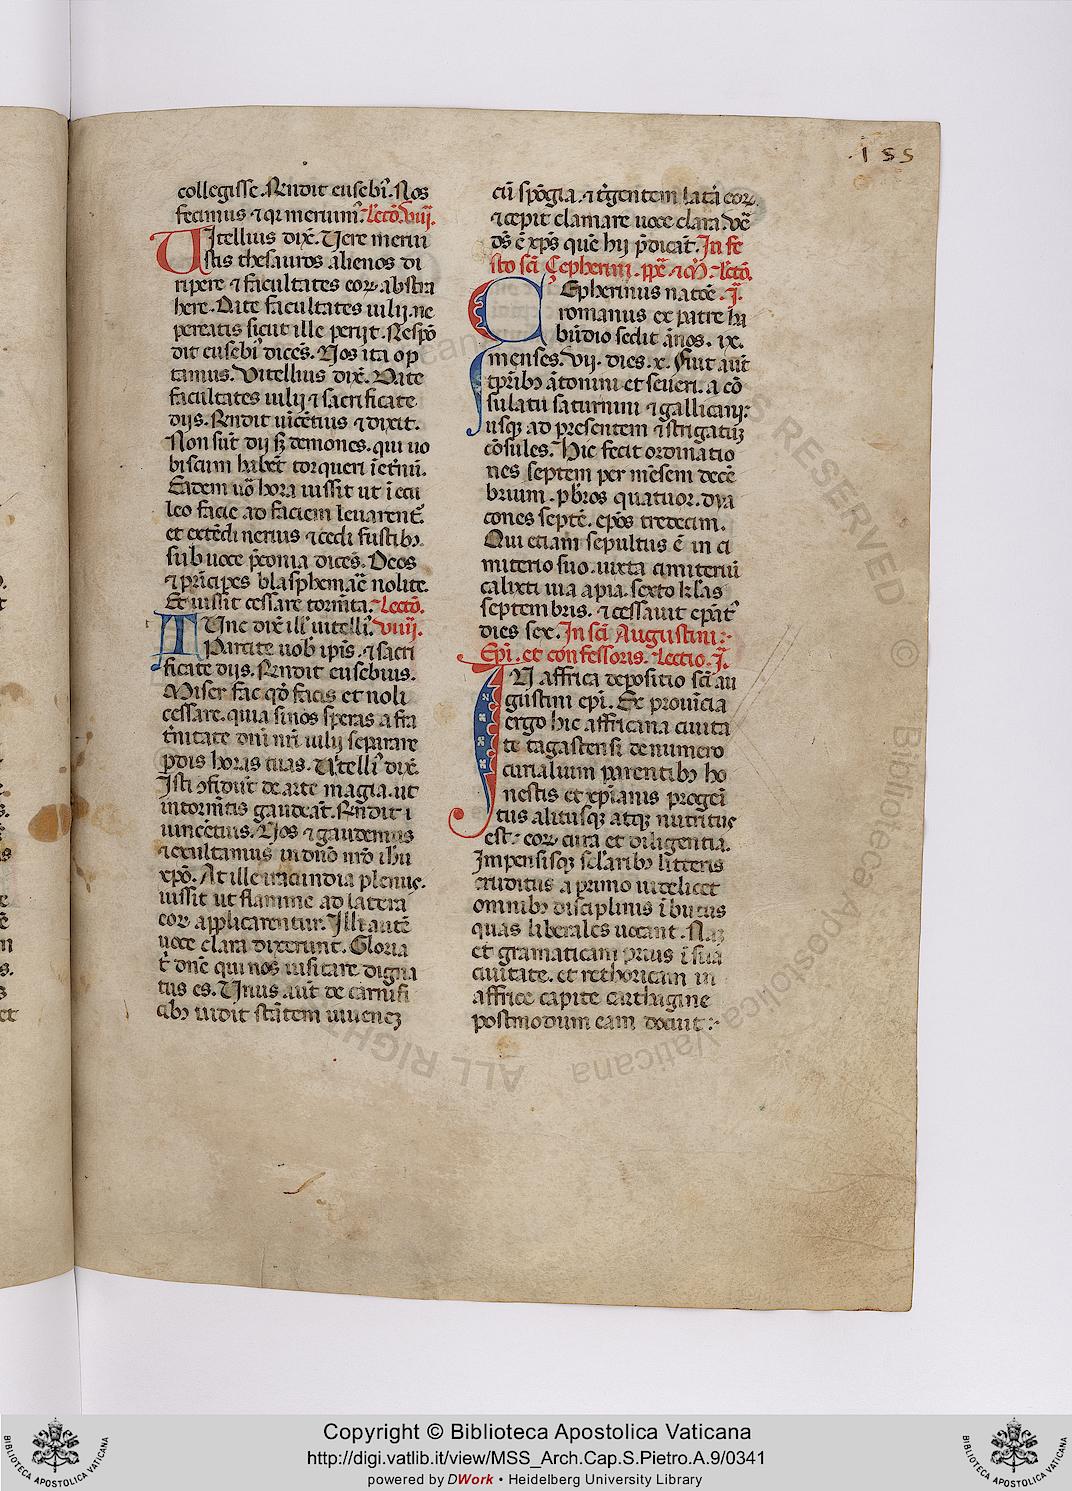 .155
collegisse. Rn̄dit eusebi'. Nos
fecimus ⁊ q̄r meruim'. Lectō. viij.
Uitellius dix̄. Uere merui
stis thesauros alienos di
ripere ⁊ facultates eoꝝ abstra
here. Date facultates iulij. ne
pereatis sicut ille perijt. Respō
dit eusebi' dicēs. Nos ita op
tamus. Vitellius dix̄. Date
facultates iulij ⁊ sacrificate
dijs. Rn̄dit uīcētius ⁊ dixit.
Non sūt dij sꝫ demones. qui uo
biscum habēt torqueri ī et̄nū.
Eadem uō hora iussit ut ī ecu
leo facie ad faciem leuarent̄.
et extēdi neruis ⁊ cedi fustibꝫ
sub uoce p̄conia dicēs. Deos
⁊ prīcipes blasphemaē nolite.
Et iussit cessare torm̄ta. Lectō.
TUnc dix̄ ill' uitelli'. viiij.
Parcite uob' ip̄is. ⁊ sacri
ficate dijs. Rn̄dit eusebius.
Miser fac qd̄ facis et noli
cessare. quia si nos speras a fra
t̄nitate dn̄i nr̄i iulij separare
ꝑdis horas tuas. Uitelli' dix̄.
Isti ꝯfidūt de arte magia. ut
in torm̄tis gaudeāt. Rn̄dit
uincētius. Nos ⁊ gaudemus
⁊ exultamus in dn̄o nr̄o ih̄u
xp̄o. At ille iracundia plenus.
iussit ut flamme ad latera
eoꝝ applicarentur. Illi autē
uoce clara dixerunt. Gloria
t' dn̄e qui nos uisitare digna
tus es. Unus aut̄ de carnifi
cibꝫ uidit stātem iuuenē
cū spōgia. ⁊ t̄gentem lat̄a eoꝝ.
⁊ cepit clamare uoce clara. Ve
d̄s ē xp̄s quē hij p̄dicāt. In fe
sto sc̄i Çepherini. pp̄e ⁊ m̄. Lectō.
Çepherinus natōe. j.
romanus ex patre ha
būdio sedit ānos. ix.
menses. vij. dies. x. Fuit aut̄
tꝑribꝫ ātonini et seueri. a cō
sulatu saturnini ⁊ gallicani:
usqꝫ ad presentem ⁊ strigatūꝫ
cōsules. Hic fecit ordinatio
nes septem per mēsem decē
brium. pb̄ros quatuor. dya
cones septē. ep̄os tredecim.
Qui etiam sepultus ē in ci
miterio suo. iuxta cimiteriū
calixti uia apia. sexto kl̄as
septembris. ⁊ cessauit ep̄at'
dies sex. In sc̄i Augustini:
Ep̄i. et confessoris. Lectio. j.
IN affrica depositio sc̄i au
gustini ep̄i. Ex prouīcia
ergo hic affricana ciuita
te tagastensi de numero
curialium parentibꝫ ho
nestis et xp̄ianis progēi
tus alitusqꝫ atqꝫ nutritus
est: eoꝝ cura et diligentia.
Impensisqꝫ sclaribꝫ litteris
eruditus a primo uidelicet
omnibꝫ disciplinis ībutus
quas liberales uocant. Naꝫ
et gramaticam prius ī sua
ciuitate. et rethoricam in
affrice capite carthagine
postmodum eam docuit:
Copyright © Biblioteca Apostolica Vaticana
http://digi.vatlib.it/view/MSS_Arch.Cap.S.Pietro.A.9/0341
powered by DWork • Heidelberg University Library